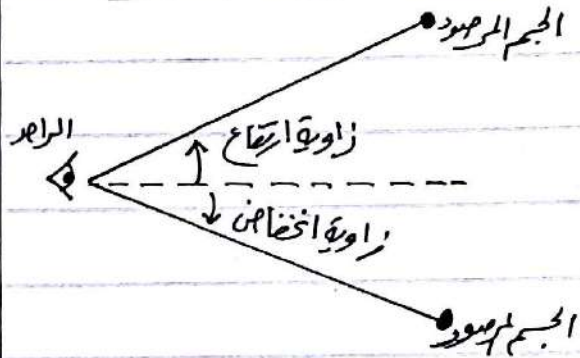 الجسم المرصود
الراصد
زاوية ارتفاع
زاوية انخفاض
الجسم المرصود